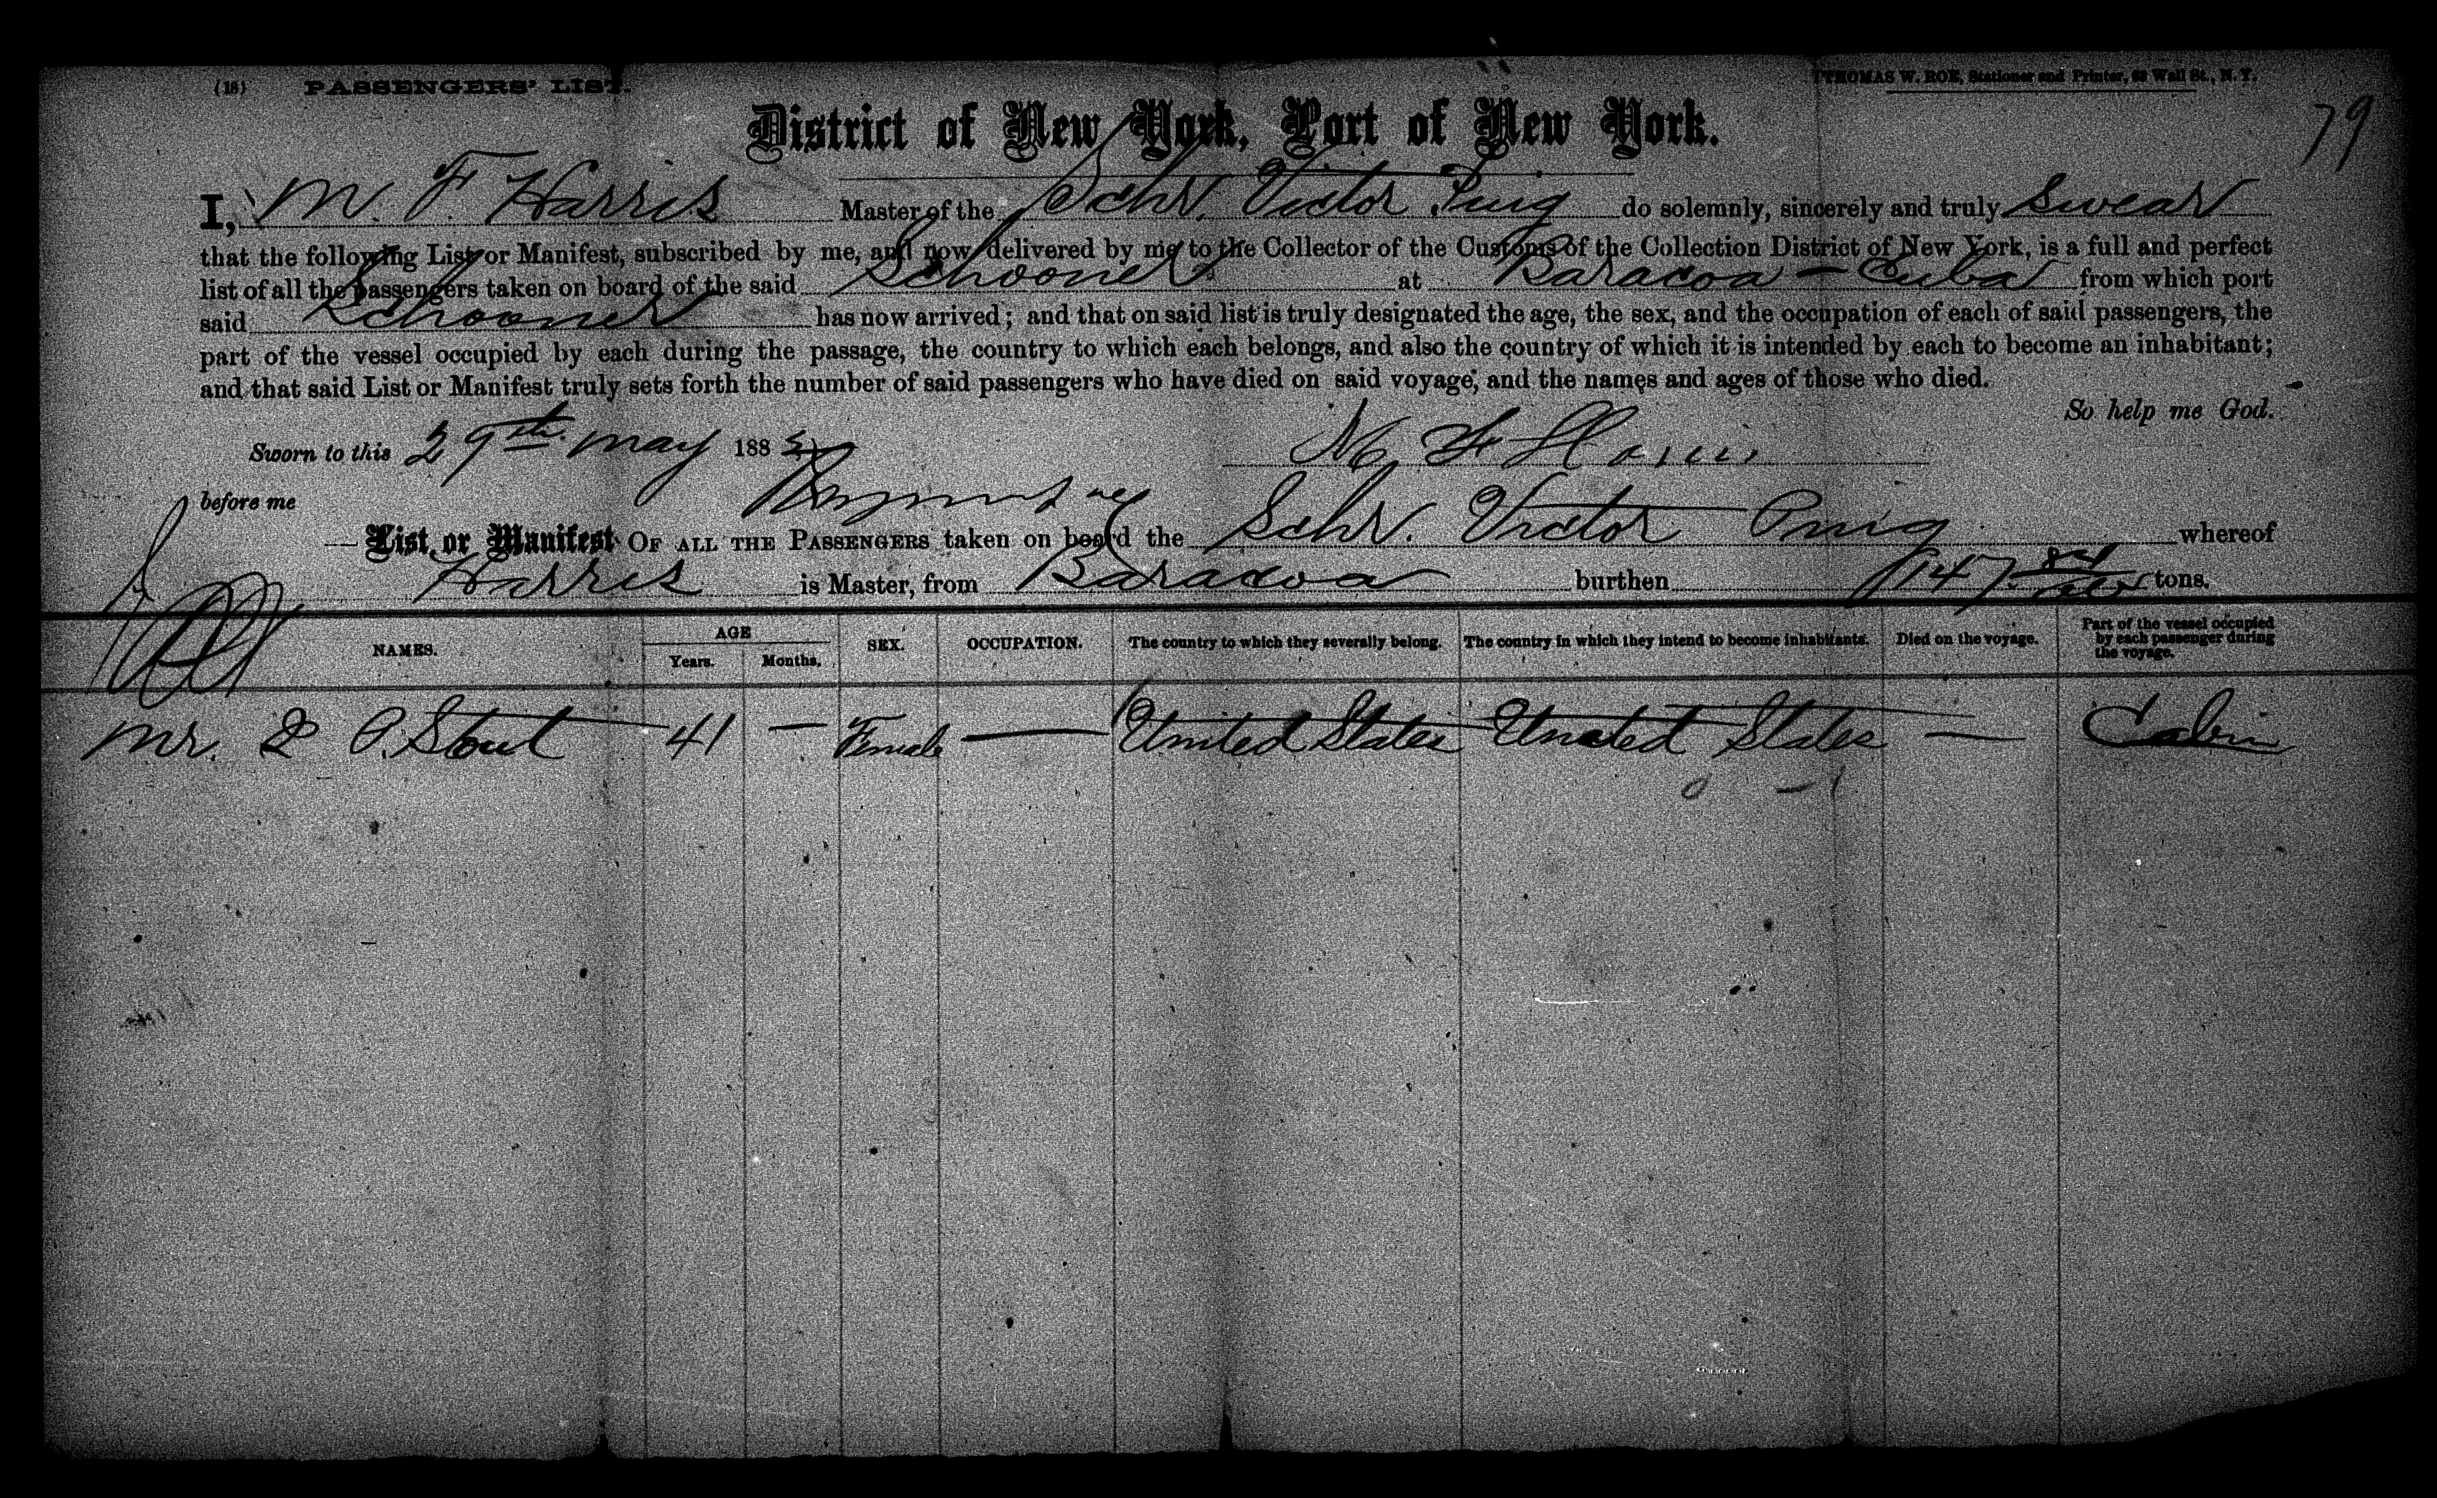 (18) PASSENGERS' LIST.
THOMAS W. ROE, Stationer and Printer, 63 Wall St., N. Y.
79
District of New York, Port of New York.
I, M. F. Harris Master of the Schr. Victor Puig do solemnly, sincerely and truly swear
that the following List or Manifest, subscribed by me, and now delivered by me to the Collector of the Customs of the Collection District of New York, is a full and perfect
list of all the passengers taken on board of the said Schooner at Baracoa - Cuba from which port
said Schooner has now arrived; and that on said list is truly designated the age, the sex, and the occupation of each of said passengers, the
part of the vessel occupied by each during the passage, the country to which each belongs, and also the country of which it is intended by each to become an inhabitant;
and that said List or Manifest truly sets forth the number of said passengers who have died on said voyage, and the names and ages of those who died.
So help me God.
Sworn to this 29th May 188 M F Harris
before me
List or Manifest OF ALL THE PASSENGERS taken on board the Schr. Victor Puig whereof
Harris is Master, from Baracoa burthen 147 84/100 tons.
NAMES. AGE Years. Months. SEX. OCCUPATION. The country to which they severally belong. The country in which they intend to become inhabitants. Died on the voyage. Part of the vessel occupied by each passenger during the voyage.
Mr. P. Stout 41 — Female — United States United States — Cabin